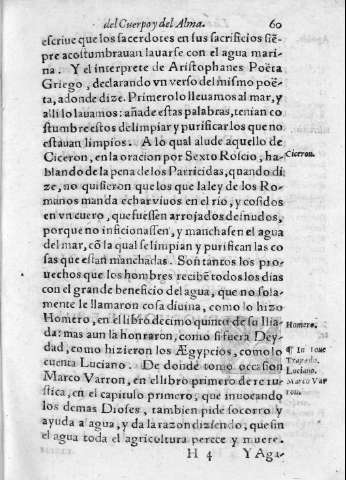 del Cuerpo y del Alma. 60
escriue que los sacerdotes en sus sacrificios siē-
pre acostumbrauan lauarse con el agua mari-
na. Y el interprete de Aristophanes Poëta
Griego, declarando vn verso del mismo poë-
ta, a donde dize. Primero lo lleuamos al mar, y
alli lo lauamos: añade estas palabras, tenian co
stumbre estos de limpiar y purificar los que no
estauan limpios. A lo qual alude aquello de
Ciceron, en la oracion por Sexto Roscio, ha-
Ciceron.
blando de la pena de los Parricidas, quando di
ze, no quisieron que los que la ley de los Ro-
manos manda echar viuos en el rio, y cosidos
en vn cuero, que fuessen arrojados desnudos,
porque no inficionassen, y manchasen el agua
del mar, cō la qual se limpian y purifican las co
sas que estan manchadas. Son tantos los pro-
uechos que los hombres recibē todos los dias
con el grande beneficio del agua, que no sola-
mente le llamaron cosa diuina, como lo hizo
Homero, en el libro decimo quinto de su Ilia-
Homero.
da: mas aun la honraron, como si fuera Dey-
dad, como hizieron los Ægypcios, como lo
¶ In Ioue
cuenta Luciano. De donde tomo occasion
Tragœdo.
Luciano.
Marco Varron, en el libro primero de re ru-
Marco Var
stica, en el capitulo primero, que inuocando
ron.
los demas Dioses, tambien pide socorro y
ayuda a'agua, y da la razon diziendo, que sin
el agua toda el agricultura perece y muere.
H 4 Y Aga-